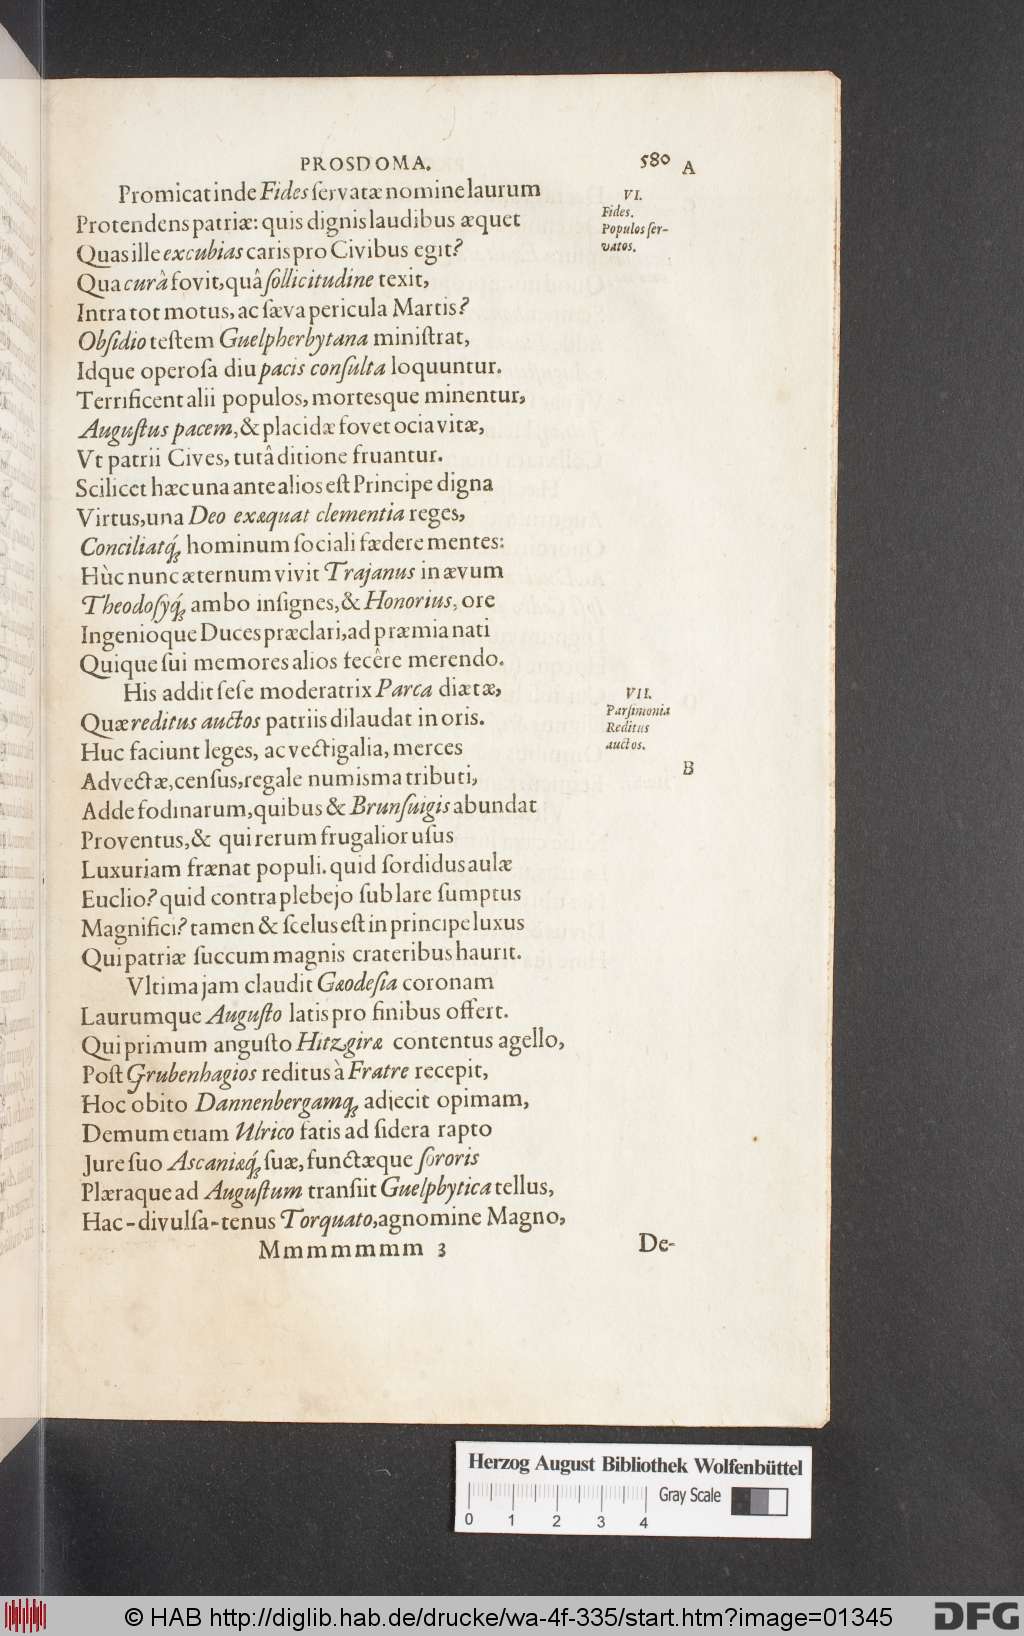 PROSDOMA. 580 A
Promicat inde Fides ſervatæ nomine laurum
VI.
Protendens patriæ: quis dignis laudibus æquet
Fides.
Populos ſer-
Quas ille excubias caris pro Civibus egit?
vatos.
Qua curâ fovit, quâ ſollicitudine texit,
Intra tot motus, ac ſæva pericula Martis?
Obſidio teſtem Guelpherbytana miniſtrat,
Idque operoſa diu pacis conſulta loquuntur.
Terrificent alii populos, mortesque minentur,
Auguſtus pacem, & placidæ fovet ocia vitæ,
Vt patrii Cives, tutâ ditione fruantur.
Scilicet hæc una ante alios eſt Principe digna
Virtus, una Deo exæquat clementia reges,
Conciliatq́; hominum ſociali fædere mentes:
Hùc nunc æternum vivit Trajanus in ævum
Theodoſyq́; ambo inſignes, & Honorius, ore
Ingenioque Duces præclari, ad præmia nati
Quique ſui memores alios fecêre merendo.
His addit ſeſe moderatrix Parca diætæ,
VII.
Parſimonia
Quæ reditus auctos patriis dilaudat in oris.
Reditus
auctos.
Huc faciunt leges, ac vectigalia, merces
B
Advectæ, cenſus, regale numisma tributi,
Adde fodinarum, quibus & Brunſuigis abundat
Proventus, & qui rerum frugalior uſus
Luxuriam frænat populi. quid ſordidus aulæ
Euclio? quid contra plebejo ſub lare ſumptus
Magnifici? tamen & ſcelus eſt in principe luxus
Qui patriæ ſuccum magnis crateribus haurit.
Vltima jam claudit Gæodeſia coronam
Laurumque Auguſto latis pro finibus offert.
Qui primum anguſto Hitzgiræ contentus agello,
Poſt Grubenhagios reditus à Fratre recepit,
Hoc obito Dannenbergamq; adjecit opimam,
Demum etiam Ulrico fatis ad ſidera rapto
Jure ſuo Ascaniæq́; ſuæ, functæque ſororis
Plæraque ad Auguſtum tranſiit Guelphytica tellus,
Hac-divulſa-tenus Torquato, agnomine Magno,
Mmmmmmm 3 De-
Herzog August Bibliothek Wolfenbüttel
Gray Scale
0 1 2 3 4
© HAB http://diglib.hab.de/drucke/wa-4f-335/start.htm?image=01345 DFG